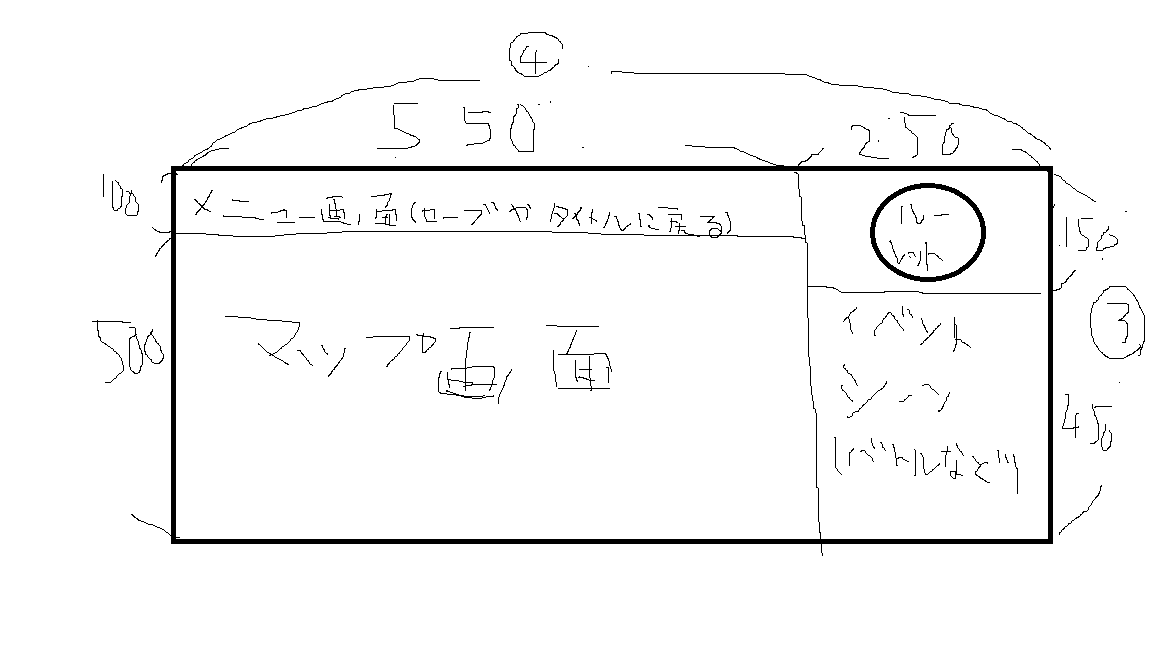 ④
550
250
100
メニュー画面(セーブやタイトルに戻る)
ルー
レット
150
500
マップ画面
イベント
シーン
(バトルなど)
③
450